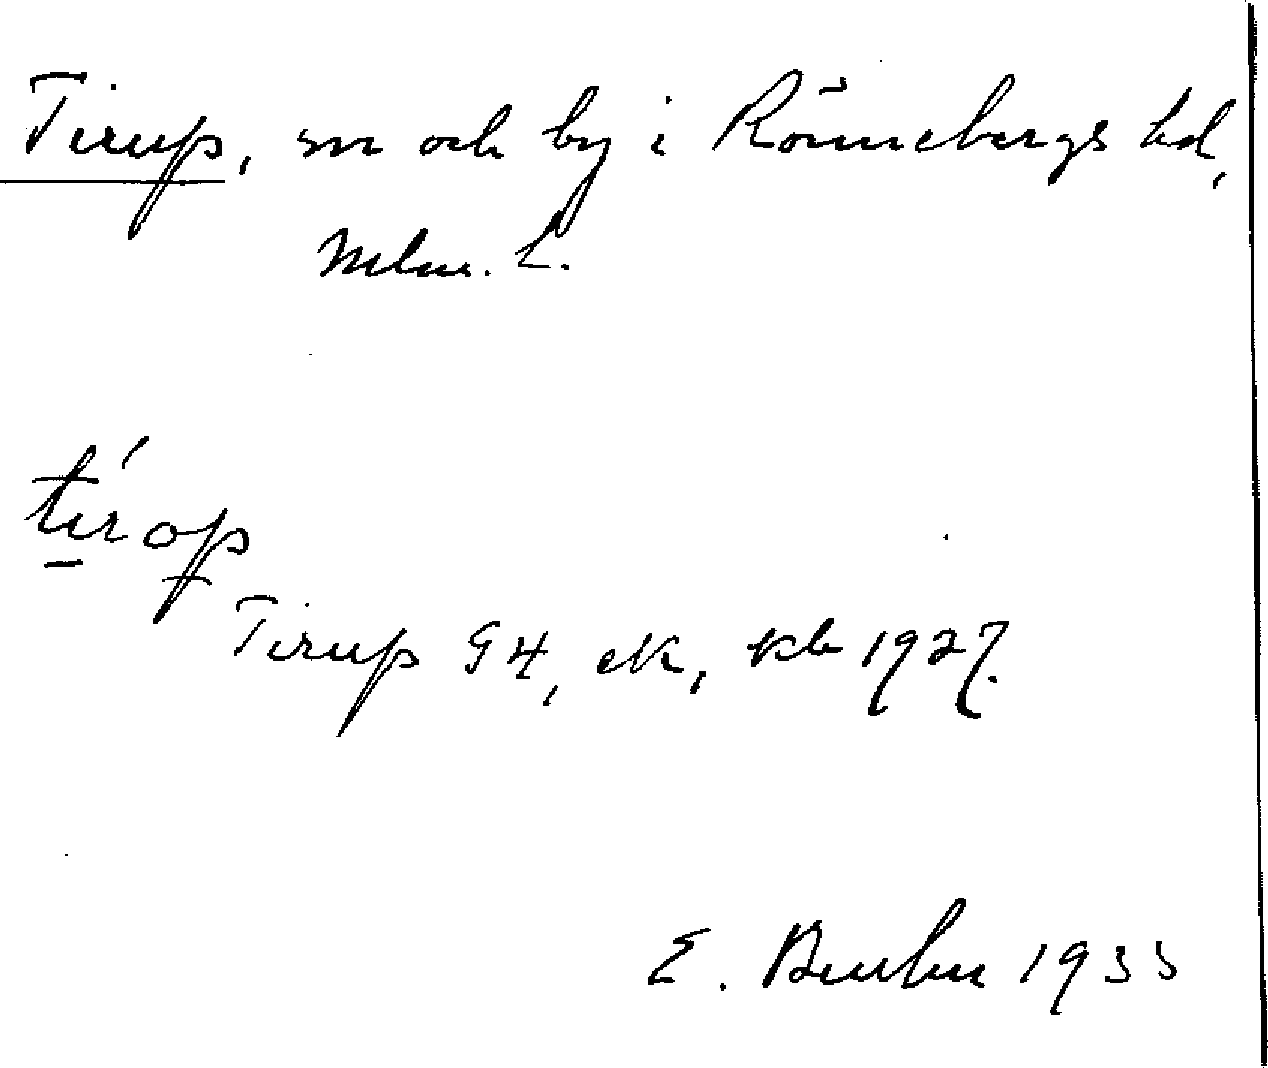 Tirup, sn och by i Rönnebergs hd,
Mlm. L.
tírop
Tirup G4, ek, kb 1927.
E. 1933